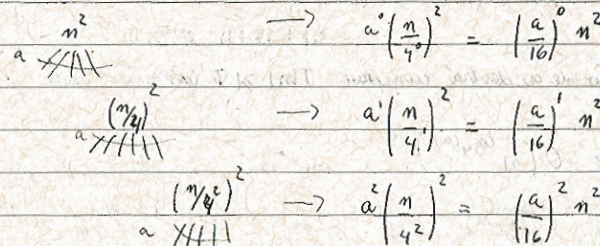 n² → a⁰(n/4⁰)² = (a/16)⁰ n²
a
(n/4)² → a¹(n/4¹)² = (a/16)¹ n²
a
(n/4²)² → a²(n/4²)² = (a/16)² n²
a